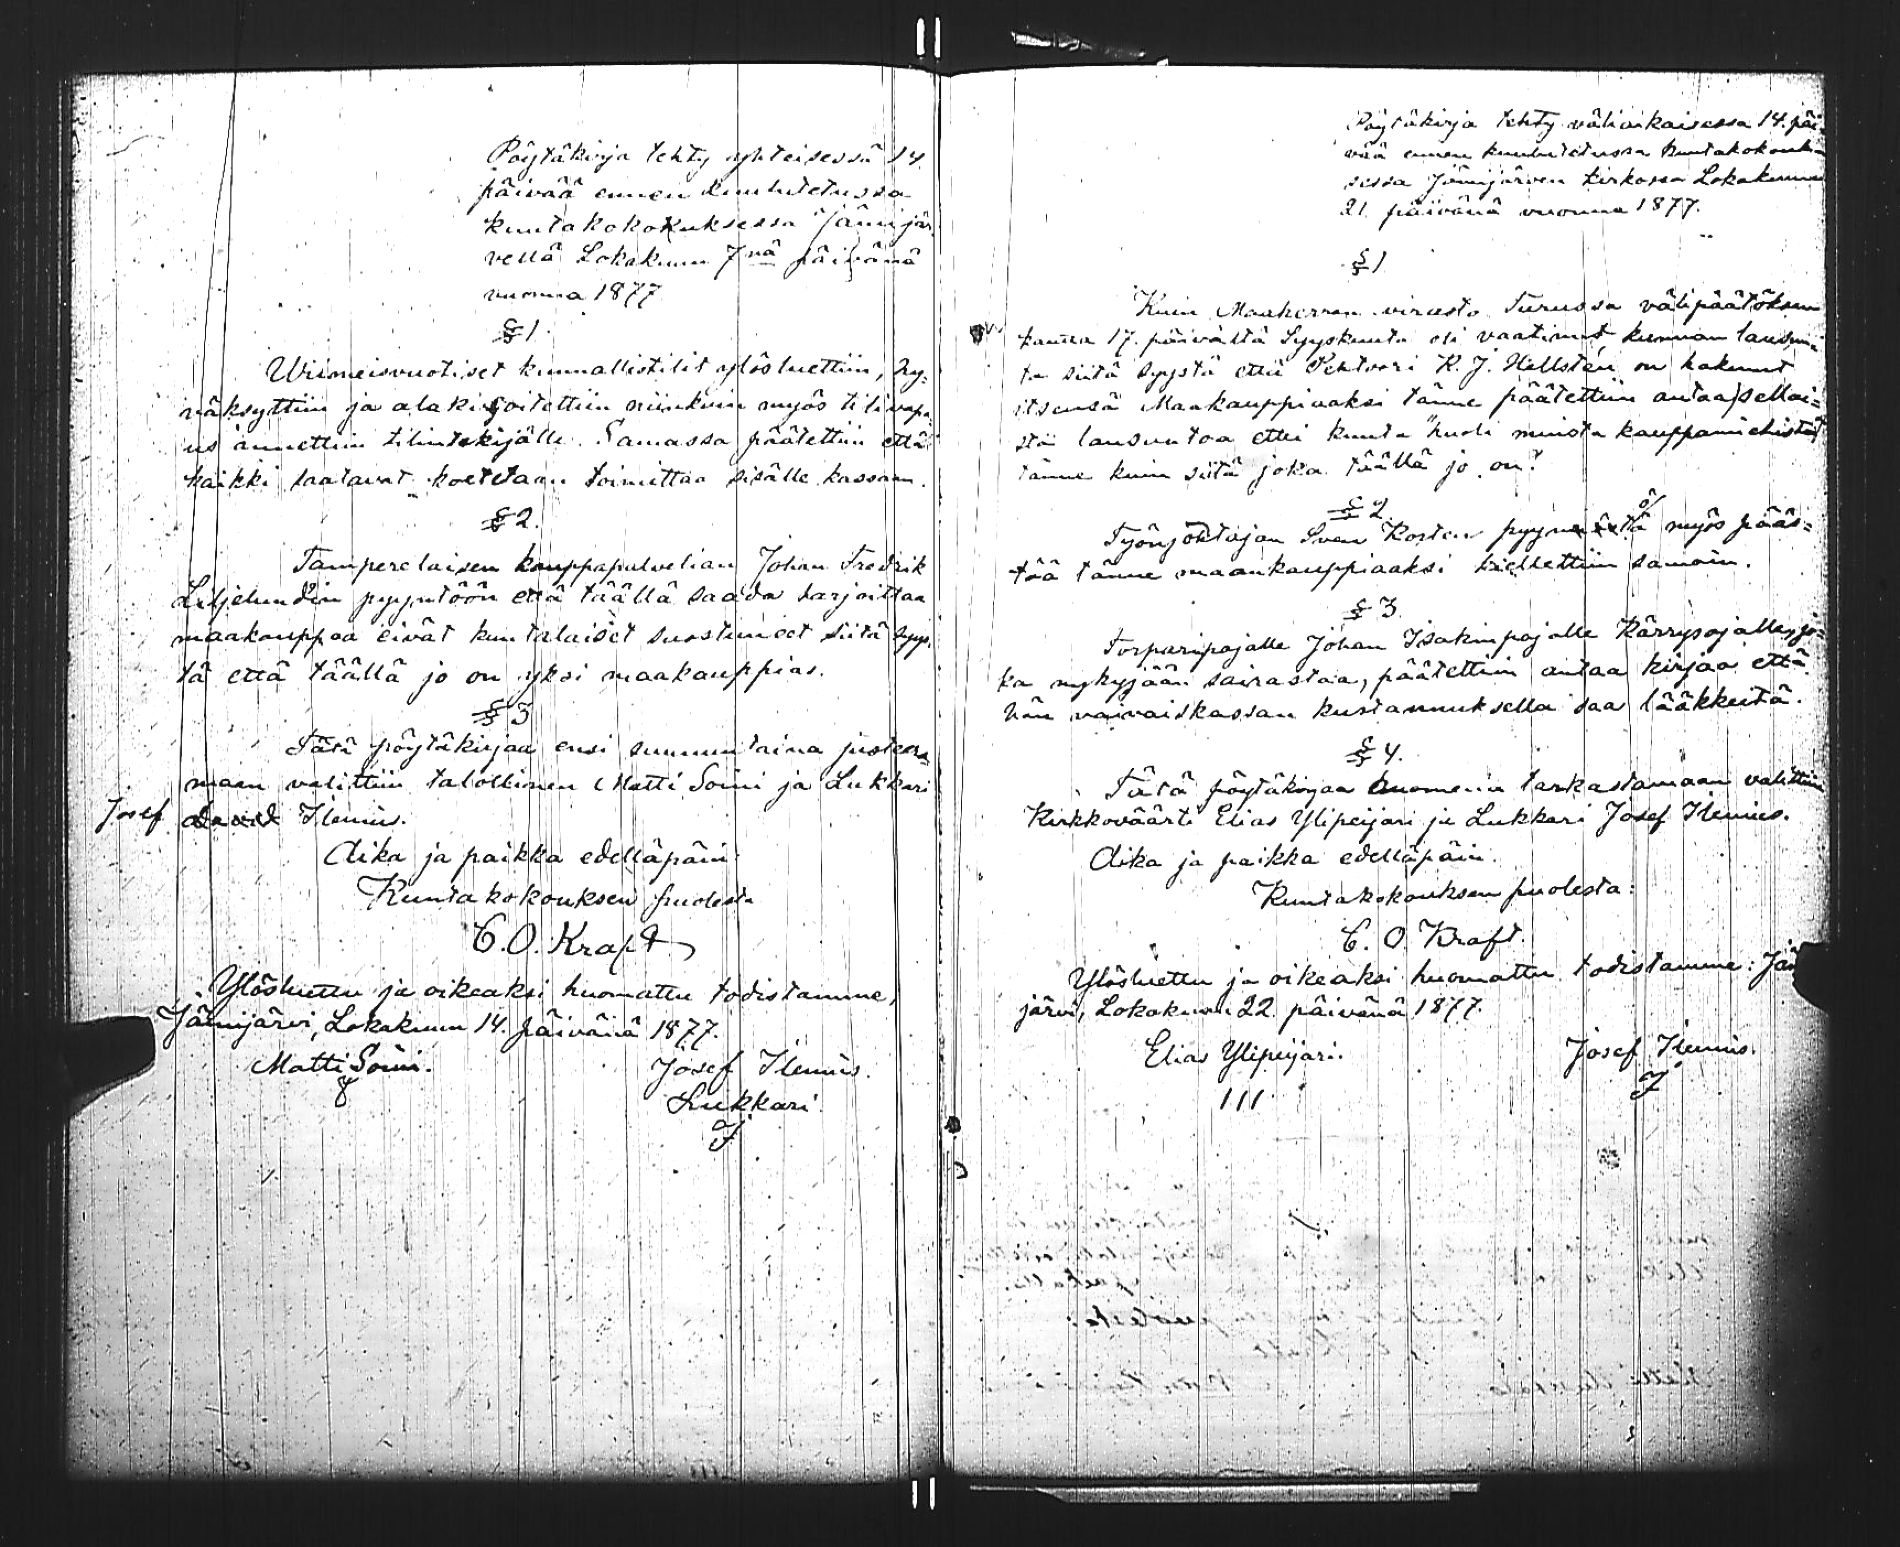 Pöytäkirja tehty yhteisessä 14.
päivää ennen kuulutetussa
kuntakokokuksessa Jämijär-
vellä Lokakuun 7nä päivänä
vuonna 1877
§ 1.
Wiimeisvuotiset kunnallistilit ylösluettiin, hy-
väksyttiin ja alakirjoitettiin niinkuin myös tilivapa-
us annettiin tilintekijälle. Samassa päätettiin että
kaikki saatavat koetetaan toimittaa sisälle kassaan.
§ 2.
Tamperelaisen kauppapalvelian Johan Fredrik
Liljelundin pyyntöön että täällä saada harjoittaa
maakauppaa eivät kuntalaiset suostuneet siitä syys-
tä että täällä jo on yksi maakauppias.
§ 3
Tätä pöytäkirjaa ensi sunnuntaina justeera-
maan valittiin talollinen Matti Soini ja Lukkari
Josef David Ilenius.
Aika ja paikka edelläpäin:
Kuntakokouksen puolesta
C. O. Kraft
Ylösluettu ja oikeaksi huomattu todistamme,
Jämijärvi, Lokakuun 14. päivänä 1877.
Matti Soini. Josef Ilenius.
Lukkari
Pöytäkirja tehty väliaikaisessa 14. päi-
vää ennen kuulutetussa kuntakokouk-
sessa Jämijärven kirkossa Lokakuun
21. päivänä vuonna 1877.
§ 1
Kuin Maaherran virasto Turussa välipäätöksen
kautta 17. päivältä Syyskuuta oli vaatinut kunnan lausun-
to siitä syystä että Pehtoori K. J. Hellstén on hakenut
itsensä Maakauppiaaksi tänne päätettiin antaa sellai-
sta lausuntoa ettei kunta "huoli muista kauppamiehistä
tänne kuin siitä joka täällä jo on".
§ 2.
Työnjohtajan Sven Rosten pyyntöä myös pääs-
töä tänne maankauppiaaksi kiellettiin samoin.
§ 3.
Torparipojalle Johan Isakinpojalle Kärrysojalle, jo-
ka nykyjään sairastaa, päätettiin antaa kirjaa että
hän vaivaiskassan kustannuksella saa lääkkeitä.
§ 4.
Tätä pöytäkirjaa huomenna tarkastamaan valittiin
Kirkkoväärti Elias Ylipeijari ja Lukkari Josef Ilenius.
Aika ja paikka edelläpäin.
Kuntakokouksen puolesta:
C. O. Kraft.
Ylösluettu ja oikeaksi huomattu todistamme: Jämi-
järvi, Lokakuun 22. päivänä 1877.
Elias Ylipeijari. Josef Ilenius.
111